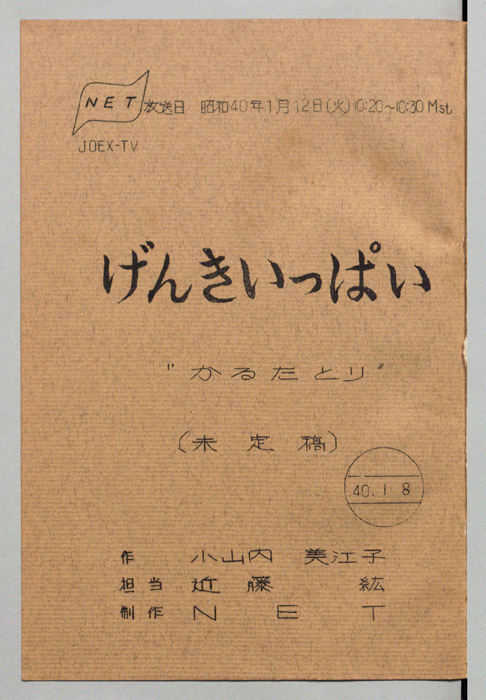 NET
放送日 昭和40年1月12日(火)10:20~10:30 Mst.
JOEX-TV
げんきいっぱい
"かるたとり"
(未定稿)
40.1 8
作 小山内 美江子
担当 近藤 紘
制作 NET